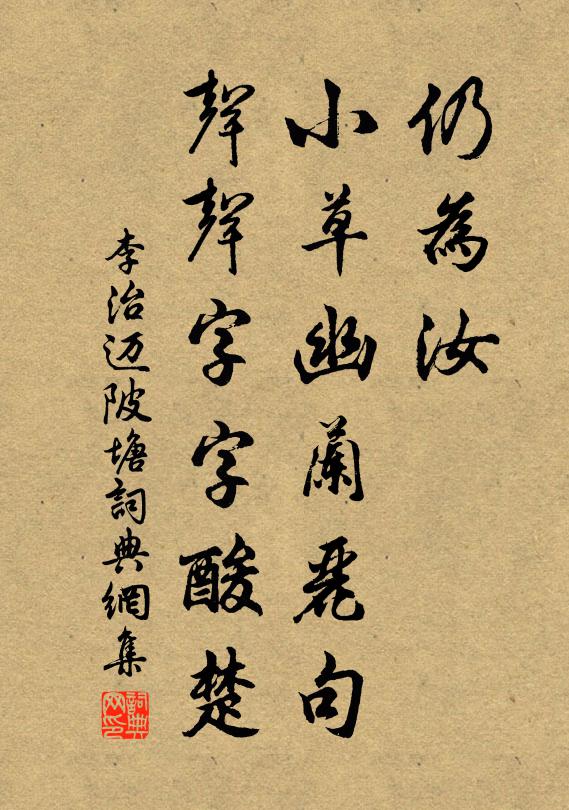 仍為汝
小草幽蘭麗句
聲聲字字酸楚
李治迈陂塘詞典網集
詞典网印